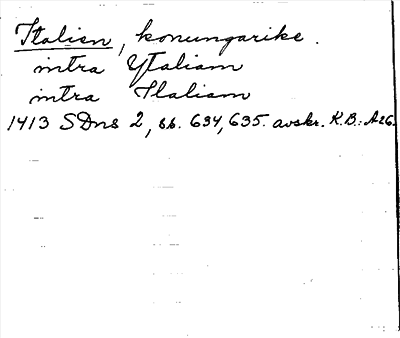 Italien, konungarike.
intra Ytaliam
intra Italiam
1413 SDns 2, ss. 634, 635. avskr. K.B.: A26.